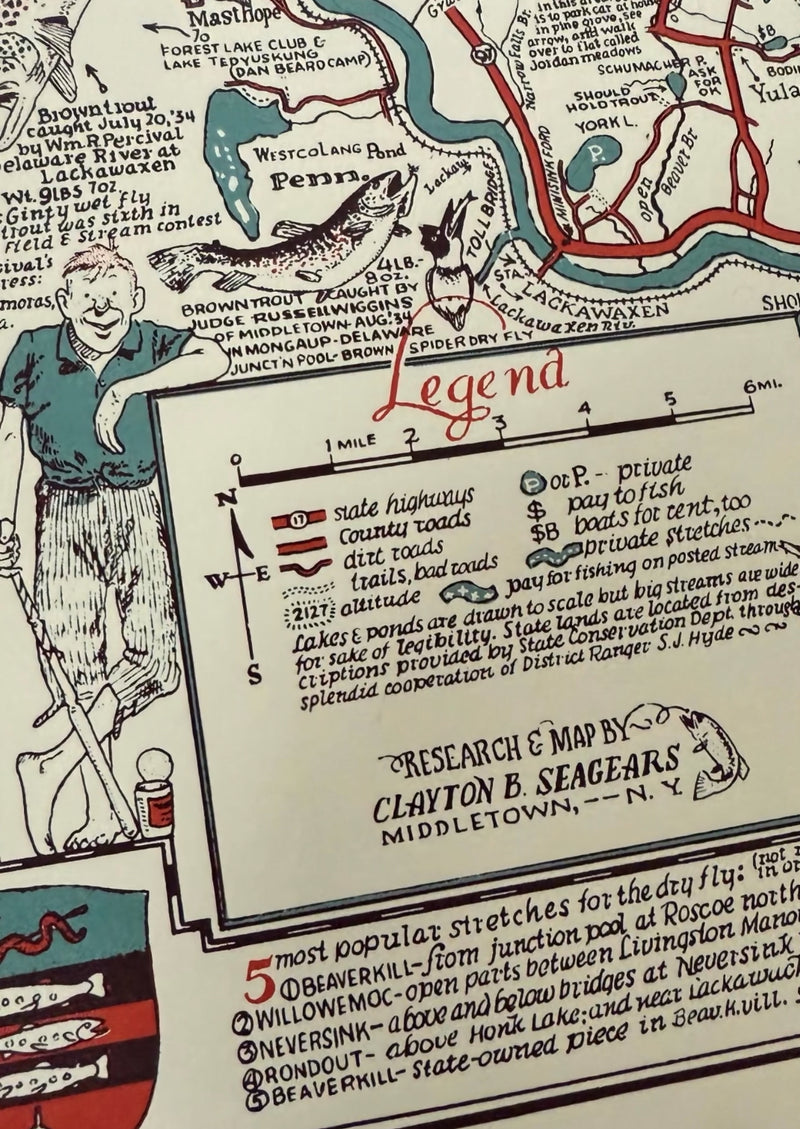 Mast Hope
To
FOREST LAKE CLUB &
LAKE TEDYUSKUNG
(DAN BEARD CAMP)
Brown trout
caught July 20,'34
by Wm.R.Percival
elaware River at
Lackawaxen
Wt. 9LBS 7oz.
Ginty wet fly
trout was sixth in
Field & Stream contest
sival's
ress:
moras,
a.
WESTCOLANG Pond
Penn.
Lackaw
TOLL BRIDGE
STA.
LACKAWAXEN
Lackawaxen Riv.
SHO
BROWN TROUT
4LB.-
8oz.
CAUGHT BY
JUDGE RUSSELL WIGGINS
OF MIDDLETOWN-AUG.'34
IN MONGAUP-DELAWARE
JUNCT'N POOL-BROWN SPIDER DRY FLY
97
Narrow Falls Br.
is to park car at hou
in pine grove, see
arrow, and walk
over to flat called
Jordan meadows
SCHUMACHER P.
ASK
FOR
OK
SHOULD
HOLD TROUT
YORK L.
P.
MINISINK FORD
open
Beaver Br.
$B
BODI
Yula
Legend
0 1 MILE 2 3 4 5 6 MI.
N
W E
S
17 state highways
County roads
dirt roads
trails, bad roads
2127 altitude
P or P. -- private
$ pay to fish
$B boats for rent, too
private stretches
pay for fishing on posted stream
Lakes & ponds are drawn to scale but big streams are wide
for sake of legibility. State lands are located from des-
criptions provided by State Conservation Dept. through
splendid cooperation of District Ranger S.J. Hyde
RESEARCH & MAP BY
CLAYTON B. SEAGEARS
MIDDLETOWN, -- N.Y.
5 most popular stretches for the dry fly: (not
in or
① BEAVERKILL-from junction pool at Roscoe north
② WILLOWEMOC-open parts between Livingston Mano
③ NEVERSINK- above and below bridges at Neversink
④ RONDOUT- above Honk Lake; and near Lackawac
⑤ BEAVERKILL- State-owned piece in Beav.K.vill.